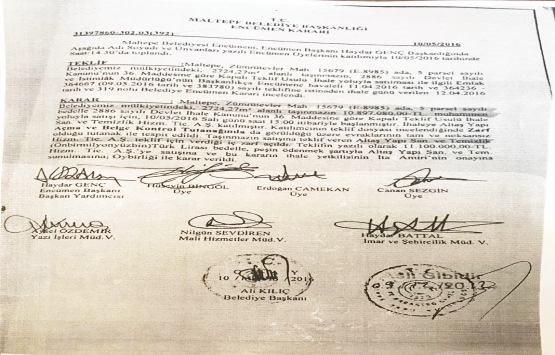 T.C.
MALTEPE BELEDİYE BAŞKANLIĞI
ENCÜMEN KARARI
31397860-302.03(392) 10/05/2016
Maltepe Belediyesi Encümeni, Encümen Başkanı Haydar GENÇ Başkanlığında
Aşağıda Adı Soyadı ve Ünvanları yazılı Encümen Üyelerinin katılımıyla 10/05/2016 tarihinde
Saat:14.30'da toplandı.
TEKLİF Maltepe, Zümrütevler Mah 15679 (E:8985) ada, 5 parsel sayılı
Belediyemiz mülkiyetindeki, 2724,27m² alanlı taşınmazın, 2886 sayılı Devlet İhale
Kanunu'nun 36 Maddesine göre Kapalı Teklif Usulü İhale yoluyla satımı ile ilgili Emlak
ve İstimlak Müdürlüğü'nün Başkanlıkça Encümene havaleli 11.04.2016 tarih ve 364236 -
364667 (09.03.2016 tarih ve 383780) sayılı teklifine istinaden ihale günü verilen 12.04.2016
tarih ve 319 nolu Belediye Encümen Kararı incelendi.
KARAR Maltepe, Zümrütevler Mah 15679 (E:8985) ada, 5 parsel sayılı
Belediyemiz mülkiyetindeki, 2724,27m² alanlı taşınmazın 10.897.080,00-TL. muhammen
bedelle 2886 sayılı Devlet İhale Kanunu'nun 36 Maddesine göre Kapalı Teklif Usulü İhale
yoluyla satışı için, 10/05/2016 Salı günü saat 15:00
San. ve Temizlik Hizm. Tic. A.Ş. katılmıştır. Katılımcının teklif dosyası incelendiğinde Zarf
Açma ve Belge Kontrol Tutanağında da görüldüğü üzere evraklarının tam ve noksansız
olduğu tutanak ile tespit edildi. Taşınmazın satışına teklif veren Altaş Yapı San. ve Temizlik
Hizm. Tic. A.Ş. için verdiği iç zarf açıldı. Teklifin yazılı olarak 11.100.000,00-TL
(OnbirmilyonyüzbinTürk Lirası bedelle, peşin ödenmek şartıyla Altaş Yapı San. ve Tem.
Hizm. Tic A.Ş.'ye satışına ve bu kararın ihale yetkilisinin İta Amiri'nin onayına
sunulmasına; Oybirliği ile karar verildi.
Haydar GENÇ Hüseyin BİNGÖL Erdoğan CAMEKAN Canan SEZGİN
Encümen Başkanı Üye Üye Üye
Başkan Yardımcısı
ÖZDEMİR Nilgün SEVDİREN Haydar BATTAL
Yazı İşleri Müd.V. Mali Hizmetler Müd.V. İmar ve Şehircilik Müd.V.
10 /2016
Ali KILIÇ
Belediye Başkanı
Aslı Gibidir